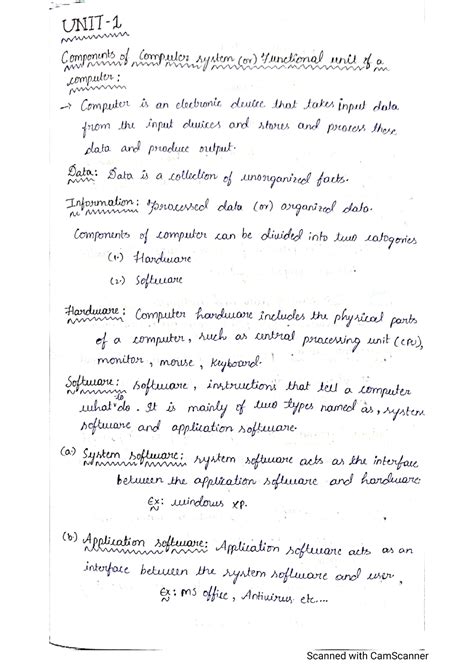 UNIT-1
Components of Computer system (or) Functional unit of a
computer :
→ Computer is an electronic device that takes input data
from the input devices and stores and process these
data and produce output.
Data: Data is a collection of unorganized facts.
Information: processed data (or) organized data.
Components of computer can be divided into two catogories
(1.) Hardware
(2.) Software
Hardware: Computer hardware includes the physical parts
of a computer, such as central processing unit (CPU),
monitor, mouse, keyboard.
Software: Software, instructions that tell a computer
what to do. It is mainly of two types named as, system
software and application software.
(a) System software: system software acts as the interface
between the application software and hardware
Ex: windows XP.
(b) Application software: Application software acts as an
interface between the system software and user,
Ex: MS office, Antivirus etc....
Scanned with CamScanner